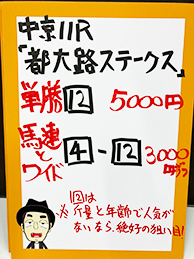 中京11R
「都大路ステークス」
単勝 12 5000円
馬連とワイド 4-12 3000円ずつ
12は
※斤量と年齢で人気が
ないなら、絶好の狙い目!